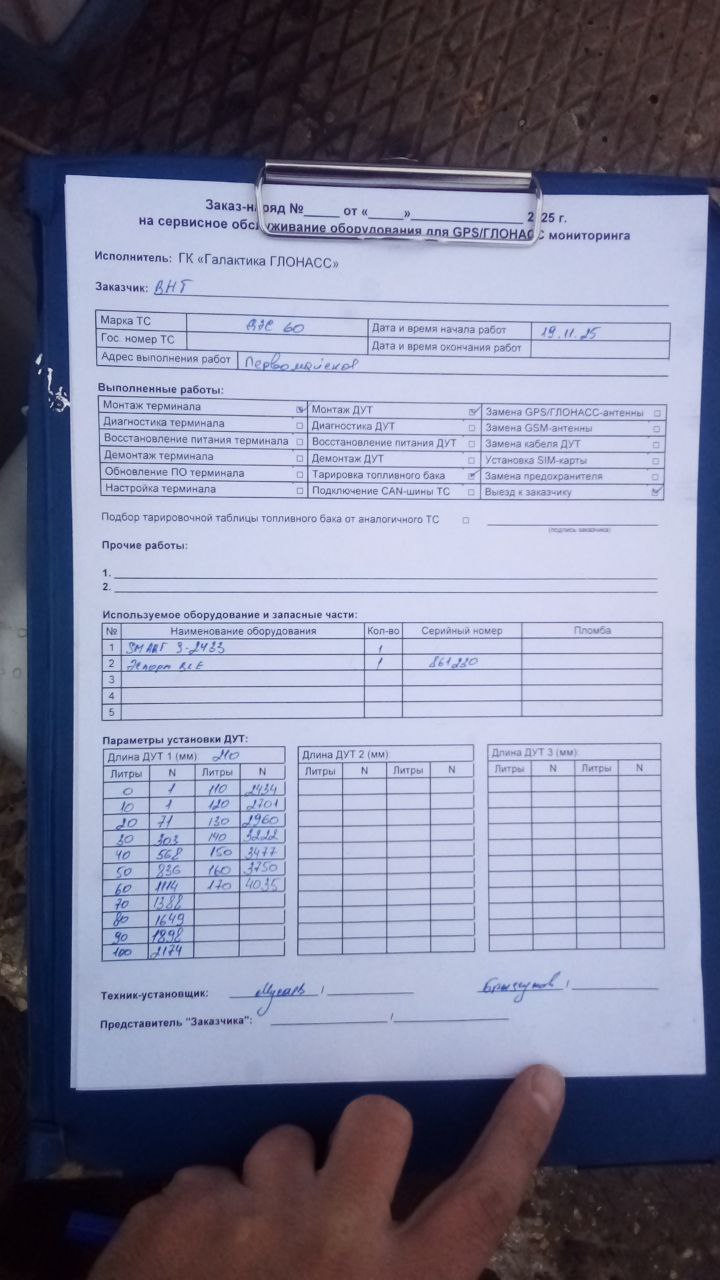 Заказ-наряд №_____ от «_____»________________ 2025 г.
на сервисное обслуживание оборудования для GPS/ГЛОНАСС мониторинга
Исполнитель: ГК «Галактика ГЛОНАСС»
Заказчик: ВНГ
Марка ТС 60 Дата и время начала работ 19.11.25
Гос. номер ТС Дата и время окончания работ
Адрес выполнения работ Первомайской
Выполненные работы:
Монтаж терминала ☑ Монтаж ДУТ ☑ Замена GPS/ГЛОНАСС-антенны ☐
Диагностика терминала ☐ Диагностика ДУТ ☐ Замена GSM-антенны ☐
Восстановление питания терминала ☐ Восстановление питания ДУТ ☐ Замена кабеля ДУТ ☐
Демонтаж терминала ☐ Демонтаж ДУТ ☐ Установка SIM-карты ☐
Обновление ПО терминала ☐ Тарировка топливного бака ☑ Замена предохранителя ☐
Настройка терминала ☐ Подключение CAN-шины ТС ☐ Выезд к заказчику ☑
Подбор тарировочной таблицы топливного бака от аналогичного ТС ☐
(подпись заказчика)
Прочие работы:
1.
2.
Используемое оборудование и запасные части:
№ Наименование оборудования Кол-во Серийный номер Пломба
1 SMART S-2433 1
2 1 861230
3
4
5
Параметры установки ДУТ:
Длина ДУТ 1 (мм): 210 Длина ДУТ 2 (мм): Длина ДУТ 3 (мм):
Литры N Литры N Литры N Литры N Литры N Литры N
0 1 110 2434
10 1 120 2701
20 71 130 2960
30 303 140 3222
40 568 150 3477
50 836 160 3750
60 1114 170 4035
70 1388
80 1649
90 1898
100 2174
Техник-установщик: Мусаев / /
Представитель "Заказчика": /